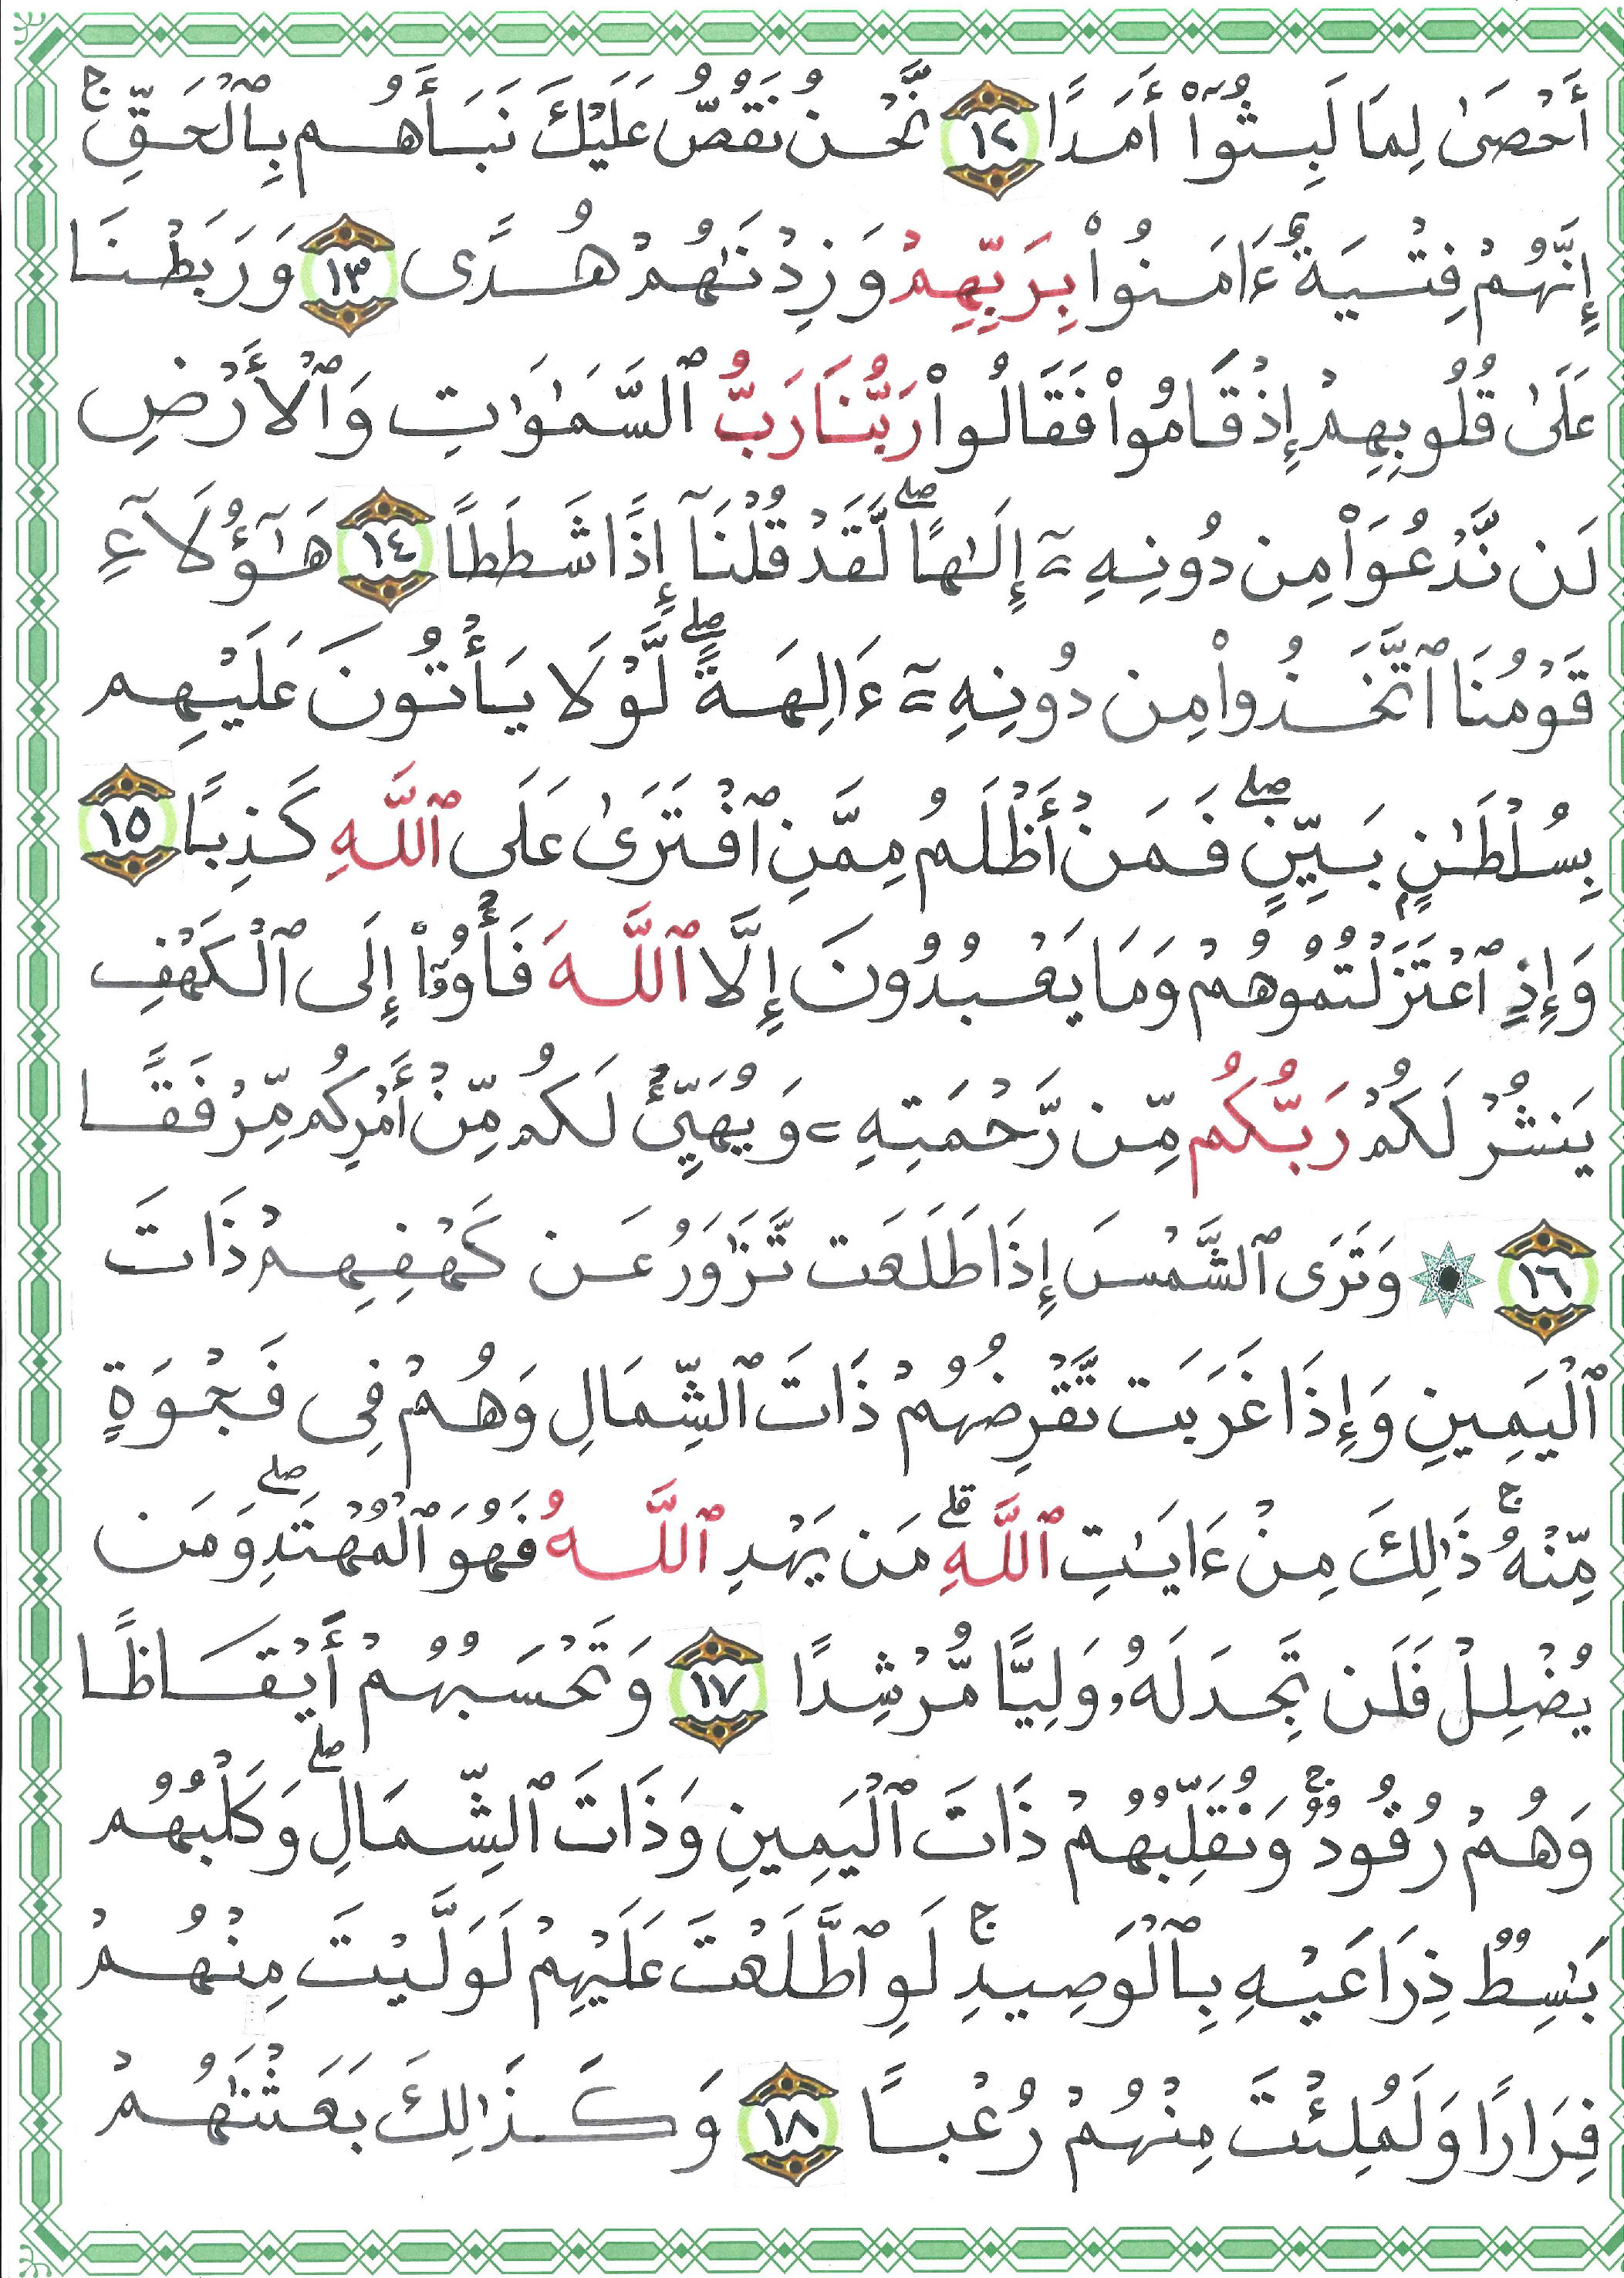 أَحْصَىٰ لِمَا لَبِثُوٓا۟ أَمَدًا ١٢ نَّحْنُ نَقُصُّ عَلَيْكَ نَبَأَهُم بِٱلْحَقِّ ۚ
إِنَّهُمْ فِتْيَةٌ ءَامَنُوا۟ بِرَبِّهِمْ وَزِدْنَـٰهُمْ هُدًى ١٣ وَرَبَطْنَا
عَلَىٰ قُلُوبِهِمْ إِذْ قَامُوا۟ فَقَالُوا۟ رَبُّنَا رَبُّ ٱلسَّمَـٰوَٰتِ وَٱلْأَرْضِ
لَن نَّدْعُوَا۟ مِن دُونِهِۦٓ إِلَـٰهًا ۖ لَّقَدْ قُلْنَآ إِذًا شَطَطًا ١٤ هَـٰٓؤُلَآءِ
قَوْمُنَا ٱتَّخَذُوا۟ مِن دُونِهِۦٓ ءَالِهَةً ۖ لَّوْلَا يَأْتُونَ عَلَيْهِم
بِسُلْطَـٰنٍۭ بَيِّنٍ ۖ فَمَنْ أَظْلَمُ مِمَّنِ ٱفْتَرَىٰ عَلَى ٱللَّهِ كَذِبًا ١٥
وَإِذِ ٱعْتَزَلْتُمُوهُمْ وَمَا يَعْبُدُونَ إِلَّا ٱللَّهَ فَأْوُۥٓا۟ إِلَى ٱلْكَهْفِ
يَنشُرْ لَكُمْ رَبُّكُم مِّن رَّحْمَتِهِۦ وَيُهَيِّئْ لَكُم مِّنْ أَمْرِكُم مِّرْفَقًا
١٦ ۞ وَتَرَى ٱلشَّمْسَ إِذَا طَلَعَت تَّزَٰوَرُ عَن كَهْفِهِمْ ذَاتَ
ٱلْيَمِينِ وَإِذَا غَرَبَت تَّقْرِضُهُمْ ذَاتَ ٱلشِّمَالِ وَهُمْ فِى فَجْوَةٍ
مِّنْهُ ۚ ذَٰلِكَ مِنْ ءَايَـٰتِ ٱللَّهِ ۗ مَن يَهْدِ ٱللَّهُ فَهُوَ ٱلْمُهْتَدِ ۖ وَمَن
يُضْلِلْ فَلَن تَجِدَ لَهُۥ وَلِيًّا مُّرْشِدًا ١٧ وَتَحْسَبُهُمْ أَيْقَاظًا
وَهُمْ رُقُودٌ ۚ وَنُقَلِّبُهُمْ ذَاتَ ٱلْيَمِينِ وَذَاتَ ٱلشِّمَالِ ۖ وَكَلْبُهُم
بَـٰسِطٌ ذِرَاعَيْهِ بِٱلْوَصِيدِ ۚ لَوِ ٱطَّلَعْتَ عَلَيْهِمْ لَوَلَّيْتَ مِنْهُمْ
فِرَارًا وَلَمُلِئْتَ مِنْهُمْ رُعْبًا ١٨ وَكَذَٰلِكَ بَعَثْنَـٰهُمْ